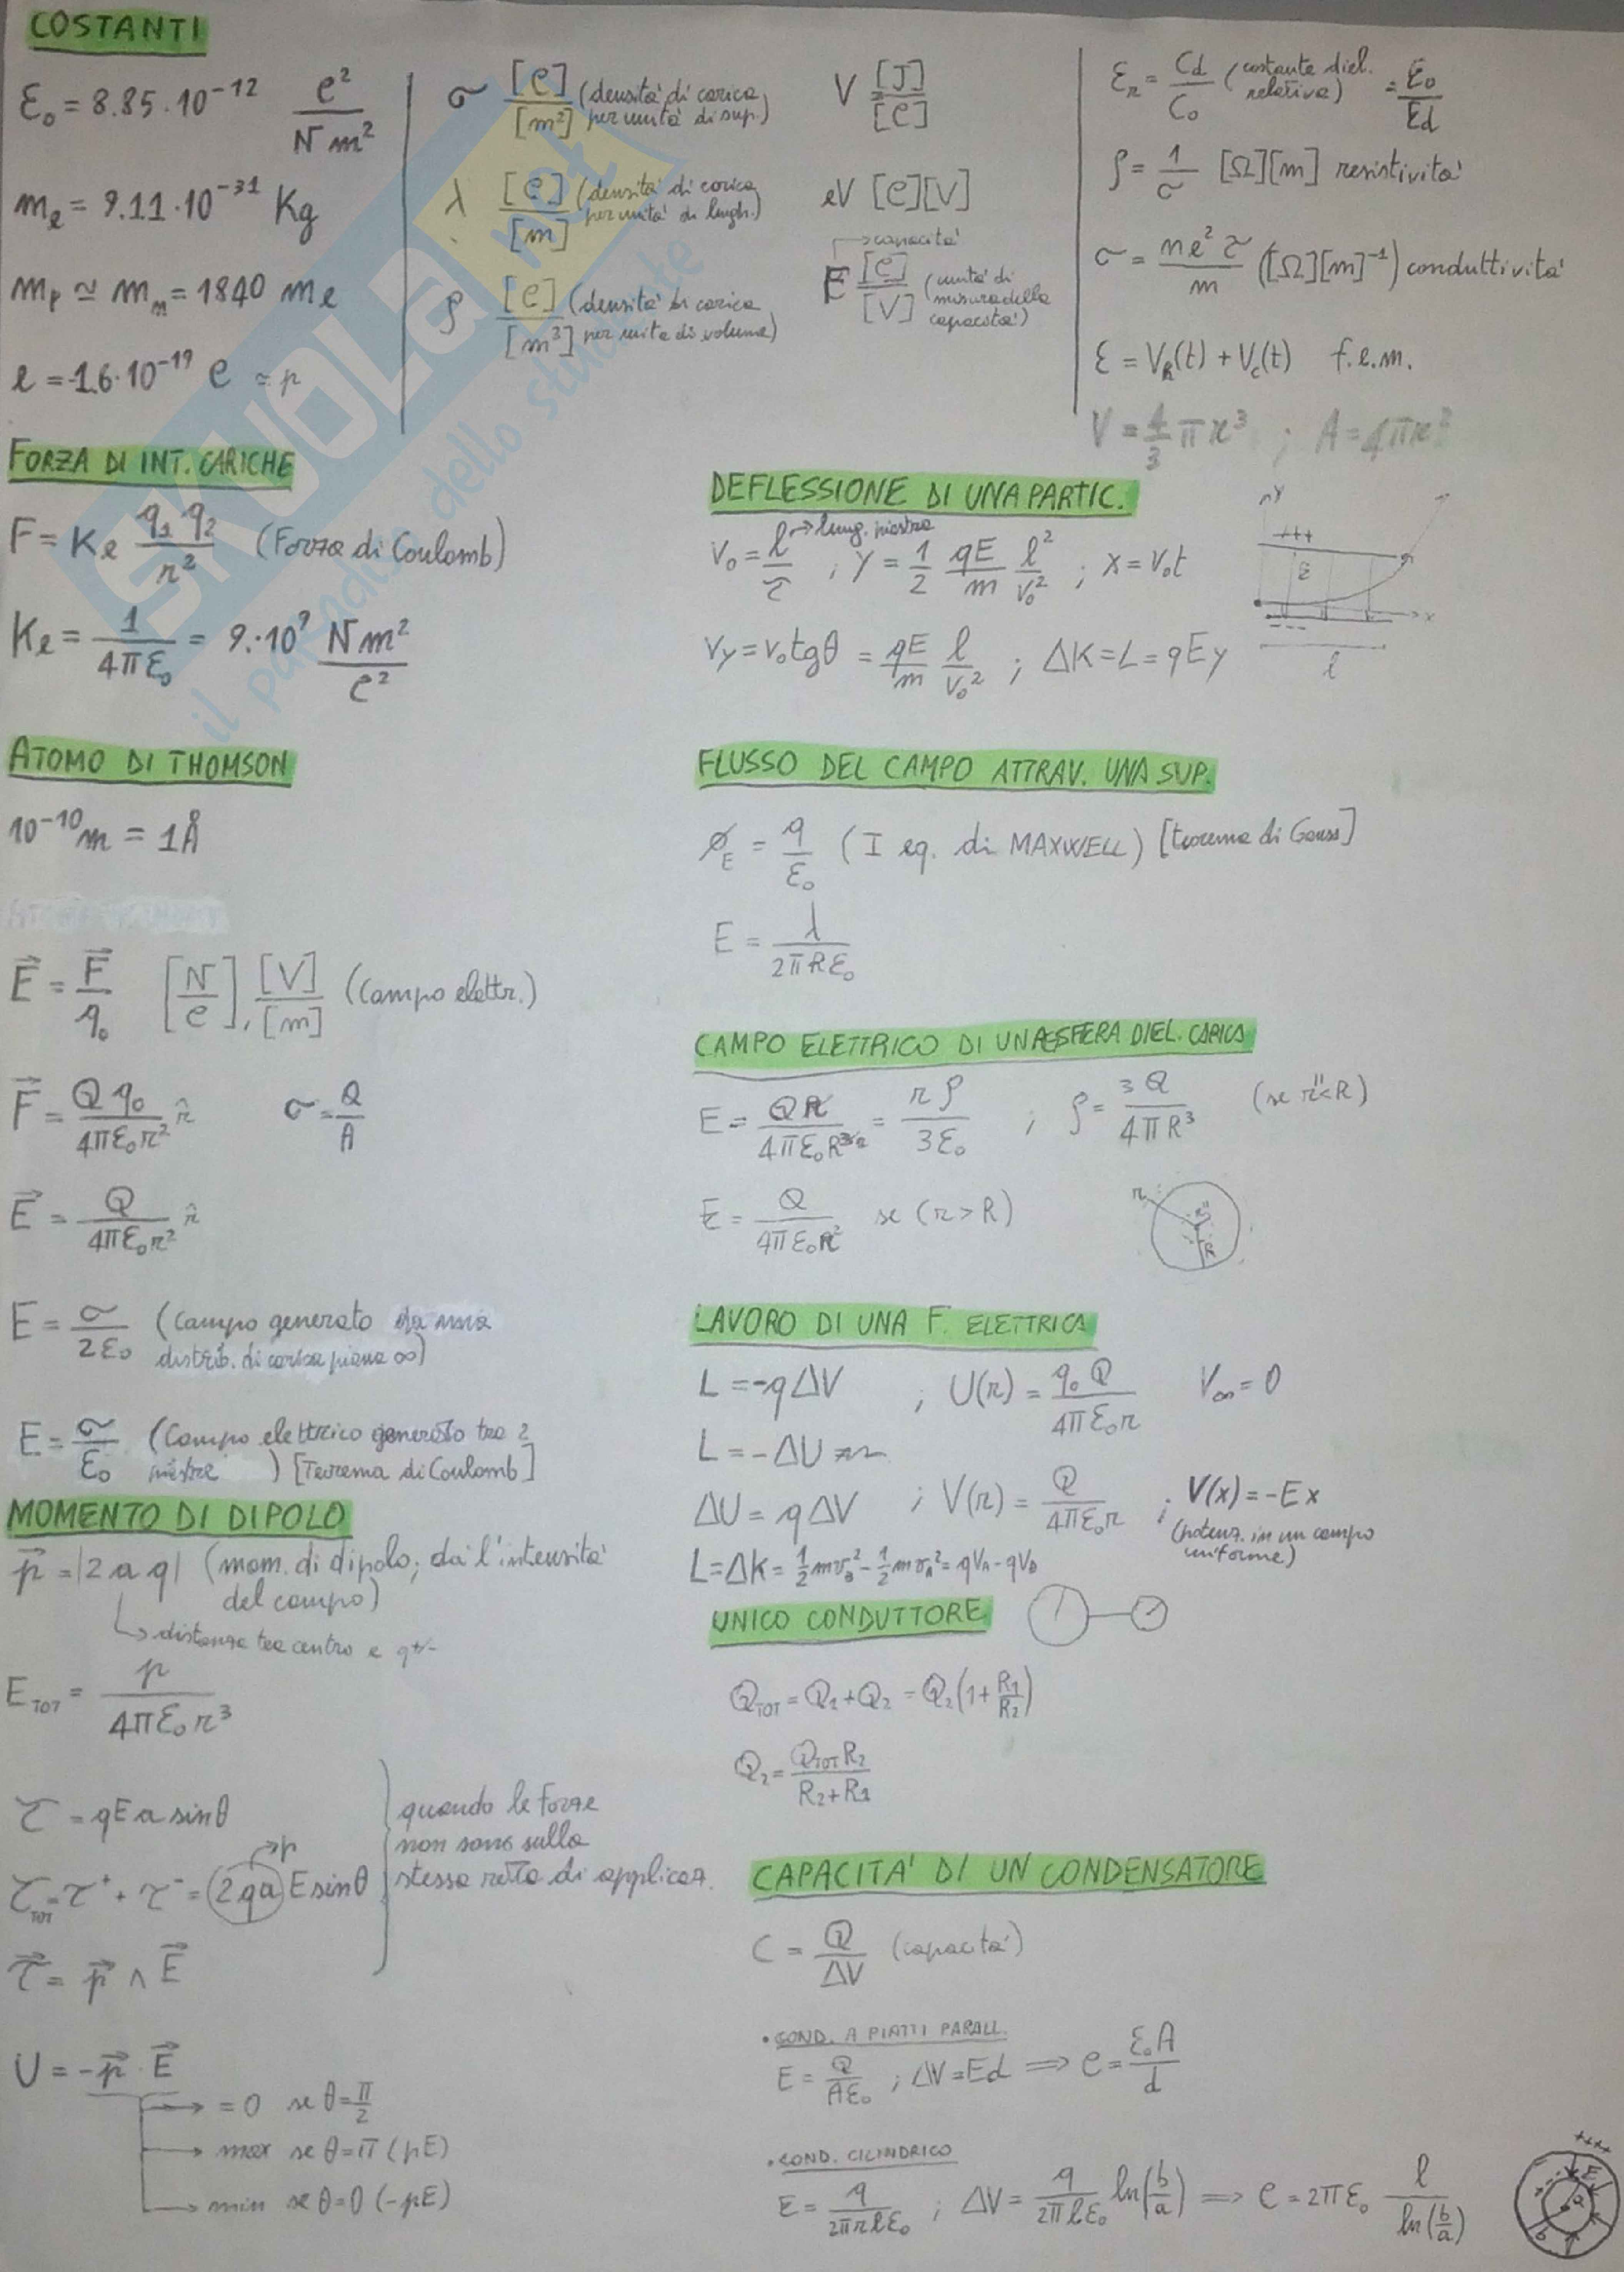 COSTANTI
ε₀ = 8.85·10⁻¹² C²/(N m²)
mₑ = 9.11·10⁻³¹ Kg
m_p ≃ mₙ = 1840 mₑ
e = -1.6·10⁻¹⁹ C ≃ p
σ [C]/[m²] (densità di carica per unità di sup.)
λ [C]/[m] (densità di carica per unità di lungh.)
ρ [C]/[m³] (densità di carica per unità di volume)
V = [J]/[C]
eV [C][V]
→ capacità
F [C]/[V] (unità di misura della capacità)
εᵣ = Cd/C₀ (costante diel. relativa) = E₀/Ed
ρ = 1/σ [Ω][m] resistività
σ = ne²τ/m ([Ω][m]⁻¹) conduttività
ε = V_R(t) + V_C(t) f.e.m.
V = 4/3 πr³ ; A = 4πr²
FORZA DI INT. CARICHE
F = Ke q₁ q₂/r² (Forza di Coulomb)
Ke = 1/(4πε₀) = 9·10⁹ N m²/C²
ATOMO DI THOMSON
10⁻¹⁰ m = 1Å
E⃗ = F⃗/q₀ [N/C], [V]/[m] (Campo elettr.)
F⃗ = Q q₀/(4πε₀r²) r̂ σ = Q/A
E⃗ = Q/(4πε₀r²) r̂
E = σ/(2ε₀) (Campo generato da una distrib. di carica piana ∞)
E = σ/ε₀ (Campo elettrico generato tra 2 piastre) [Teorema di Coulomb]
MOMENTO DI DIPOLO
p⃗ = |2 a q| (mom. di dipolo; dà l'intensità del campo)
→ distanza tra centro e q+/-
E_TOT = p/(4πε₀r³)
τ = qEa sinθ
τ_TOT = τ⁺ + τ⁻ = (2qa) E sinθ
→ p
τ⃗ = p⃗ ∧ E⃗
quando le forze
non sono sulla
stessa retta di applicaz.
U = -p⃗ · E⃗
→ = 0 se θ = π/2
→ max se θ = π (pE)
→ min se θ = 0 (-pE)
DEFLESSIONE DI UNA PARTIC.
V₀ = l/τ → lung. piastra ; Y = 1/2 qE/m l²/V₀² ; X = V₀t
Vy = V₀ tgθ = qE/m l/V₀² ; ΔK = L = qEy
Y
+++
E
x
---
l
FLUSSO DEL CAMPO ATTRAV. UNA SUP.
Ø_E = q/ε₀ (I eq. di MAXWELL) [teorema di Gauss]
E = λ/(2πRε₀)
CAMPO ELETTRICO DI UNA SFERA DIEL. CARICA
E = QR/(4πε₀R³) = rρ/(3ε₀) ; ρ = 3Q/(4πR³) (se r"<R)
E = Q/(4πε₀R²) se (r > R)
r
r"
R
LAVORO DI UNA F. ELETTRICA
L = -qΔV ; U(r) = q₀Q/(4πε₀r) V∞ = 0
L = -ΔU
ΔU = qΔV ; V(r) = Q/(4πε₀r) ; V(x) = -Ex
(potenz. in un campo uniforme)
L = ΔK = 1/2 mv_B² - 1/2 mv_A² = qV_A - qV_B
UNICO CONDUTTORE
Q_TOT = Q₁ + Q₂ = Q₂(1 + R₁/R₂)
Q₂ = Q_TOT R₂/(R₂ + R₁)
CAPACITA' DI UN CONDENSATORE
C = Q/ΔV (capacità)
• COND. A PIATTI PARALL.
E = Q/(Aε₀) ; ΔV = Ed ⟹ C = ε₀A/d
• COND. CILINDRICO
E = q/(2πrlε₀) ; ΔV = q/(2πlε₀) ln(b/a) ⟹ C = 2πε₀ l/ln(b/a)
++++
E
a
b
SKUOLA.net
il paradiso dello studente